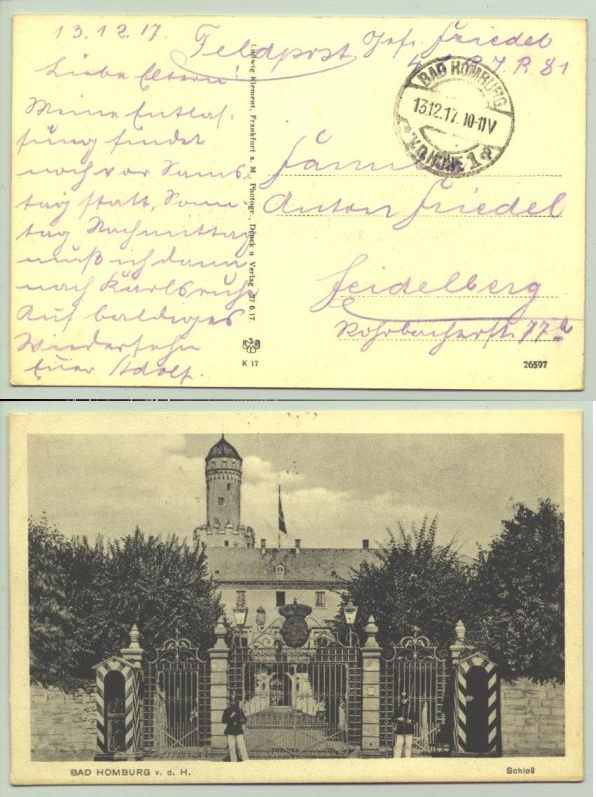 13.12.17.
Feldpost
Gefr. Friedel
R. I. R. 81
Liebe Eltern!
Meine Entlas-
sung findet
noch vor Sams-
tag statt, Sonn-
tag Nachmittag
muß ich dann
nach Karlsruhe
Auf baldiges
Wiedersehn
Euer Adolf.
BAD HOMBURG
13.12.17. 10-11V
Ludwig Klement, Frankfurt a. M. Photogr., Druck u Verlag
6.17.
Familie
Anton Friedel
Heidelberg
Rohrbacherstr. 77
K 17
26597
BAD HOMBURG v. d. H.
Schloß